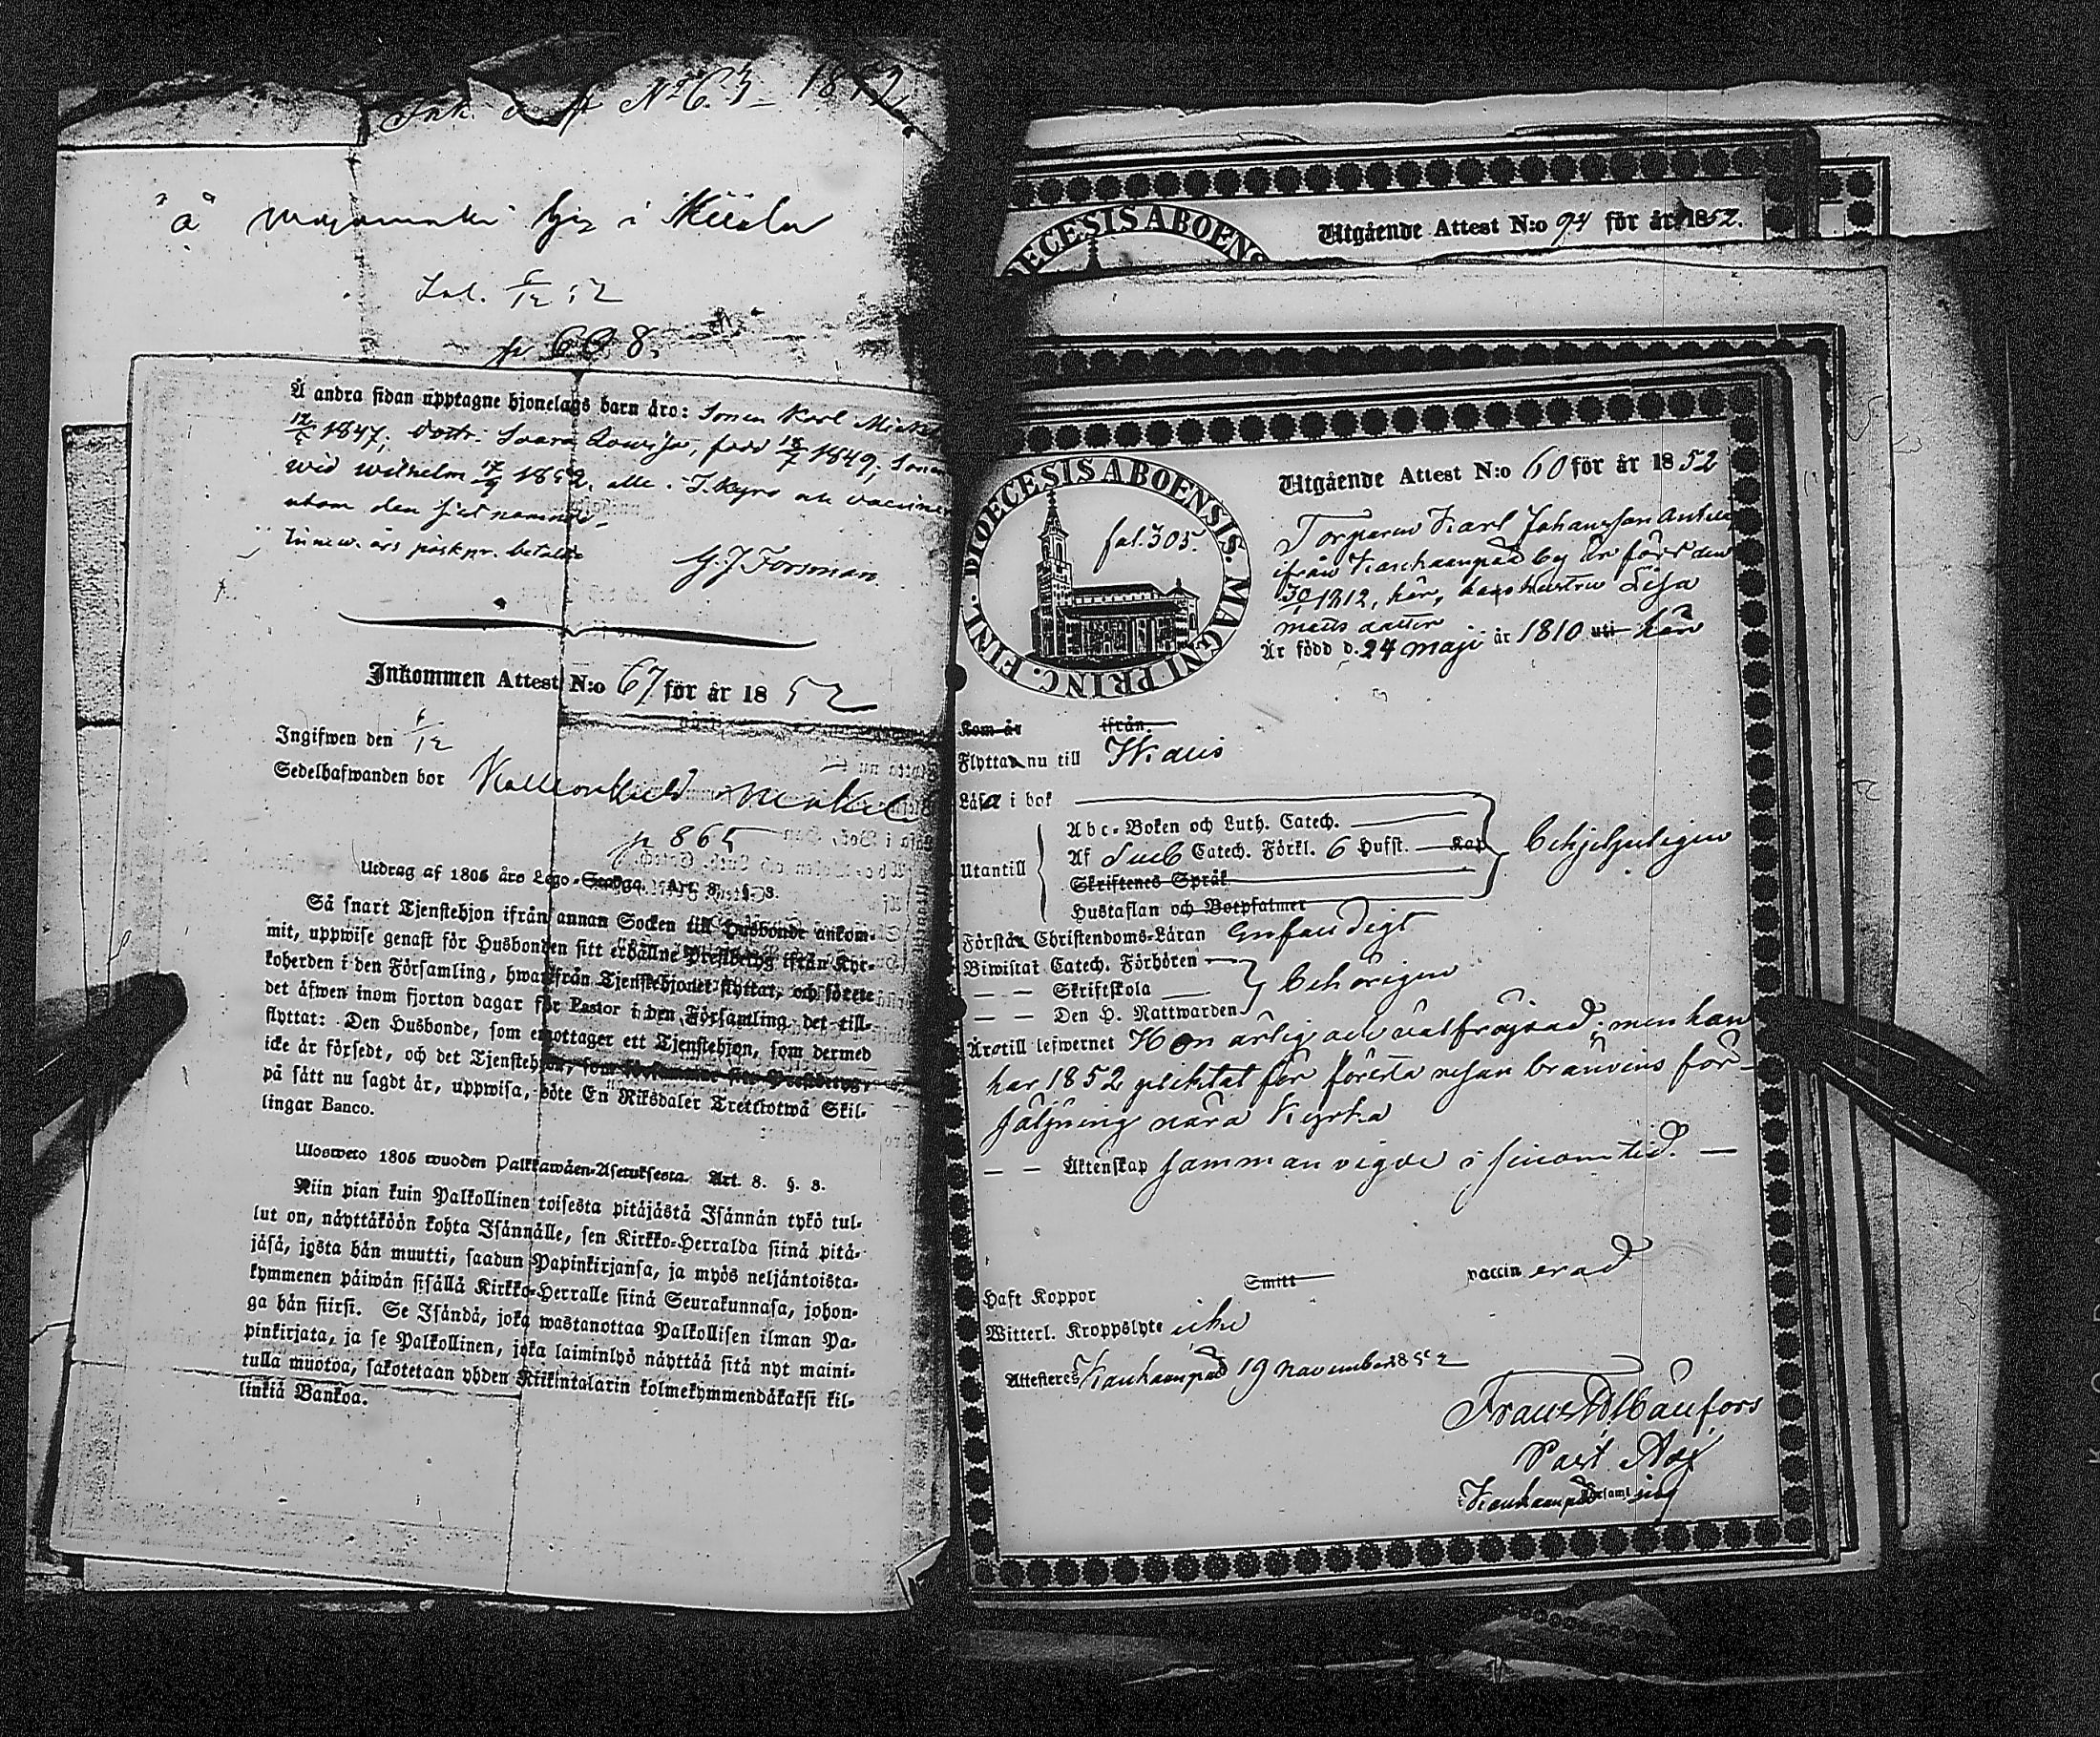 Ink. N:o 63 1852
"å" majamaki by i Kiila
Inl. 6/12 52
p 608.
Å andra sidan upptagne hjonelags barn äro: Sonen Karl Mickel
12/5 1847; dottr. Saara Lowisa, född 18/7 1849; Sonen
wid wilhelm 17/9 1852, alla i S. Kyro ock vaccine
utom den sistnämnde.
Innew. års påskpr. betalte
G. J. Forsman
Inkommen Attest N:o 67 för år 1852
Ingifwen den 6/12
Sedelhafwanden bor
p 865
Utdrag af 1805 års Lego-Stadga. Art. 8. §. 8.
Så snart Tjenstehjon ifrån annan Socken till Husbonde ankom-
mit, uppwise genast för Husbonden sitt erhållne Prestbetyg ifrån Kyr-
koherden i den Församling, hwarifrån Tjenstehjonet flyttat, och förete
det äfwen inom fjorton dagar för Pastor i den Församling det till-
flyttat: Den Husbonde, som emottager ett Tjenstehjon, som dermed
icke är försedt, och det Tjenstehjon, som försummar sitt Prestbetyg,
på sätt nu sagdt är, uppwisa, böte En Riksdaler Trettiotwå Skil-
lingar Banco.
Ulosweto 1805 wuoden Palkkawäen-Asetuksesta. Art. 8. §. 8.
Niin pian kuin Palkollinen toisesta pitäjästä Isännän tykö tul-
lut on, näyttäköön kohta Isännälle, sen Kirkko-Herralda siinä pitä-
jäsä, josta hän muutti, saadun Papinkirjansa, ja myös neljäntoista-
kymmenen päiwän sisällä Kirkko-Herralle siinä Seurakunnasa, johon-
ga hän siirsi. Se Isändä, joka wastanottaa Palkollisen ilman Pa-
pinkirjata, ja se Palkollinen, joka laiminlyö näyttää sitä nyt maini-
tulla muotoa, sakotetaan yhden Riikintalarin kolmekymmendäkaksi kil-
linkiä Bankoa.
DIOECESIS ABOENS
Utgående Attest N:o 94 för år 1852.
DIOECESIS ABOENSIS. MAGNI PRINC. FINL.
fol. 305.
Utgående Attest N:o 60 för år 1852
Torparen Karl Johansson Antila
ifrån Kanhaanpää by är född den
30/1 1812, här, hans hustru Lisa
Matts dotter
Är född d. 24 maji år 1810 uti här
Kom år ifrån
Flyttar nu till Ikalis
Läsa i bok
Utantill
Abc-Boken och Luth. Catech.
Af Sueb Catech. Förkl. 6 Hufst. Kap
Skriftenes Språk
Hustaflan och Botpsalmer
behjelpeligen
Förstår Christendoms-Läran enfaldigt
Biwistat Catech. Förhören
— — Skriftskola
— — Den H. Nattwarden
behörigen
Äro till lefwernet Hon ärlig och välfräjdad; men han
har 1852 pliktat för första resan bränvins för-
säljning nära Kyrka
— — Äktenskap samman vigde i sinom tid. —
Haft Koppor Smitt vaccinerad
Witterl. Kroppslyte icke
Attesteres Kanhaanpää 19 november 1852
Frans
Past. Adj
i Kanhaanpää Församling